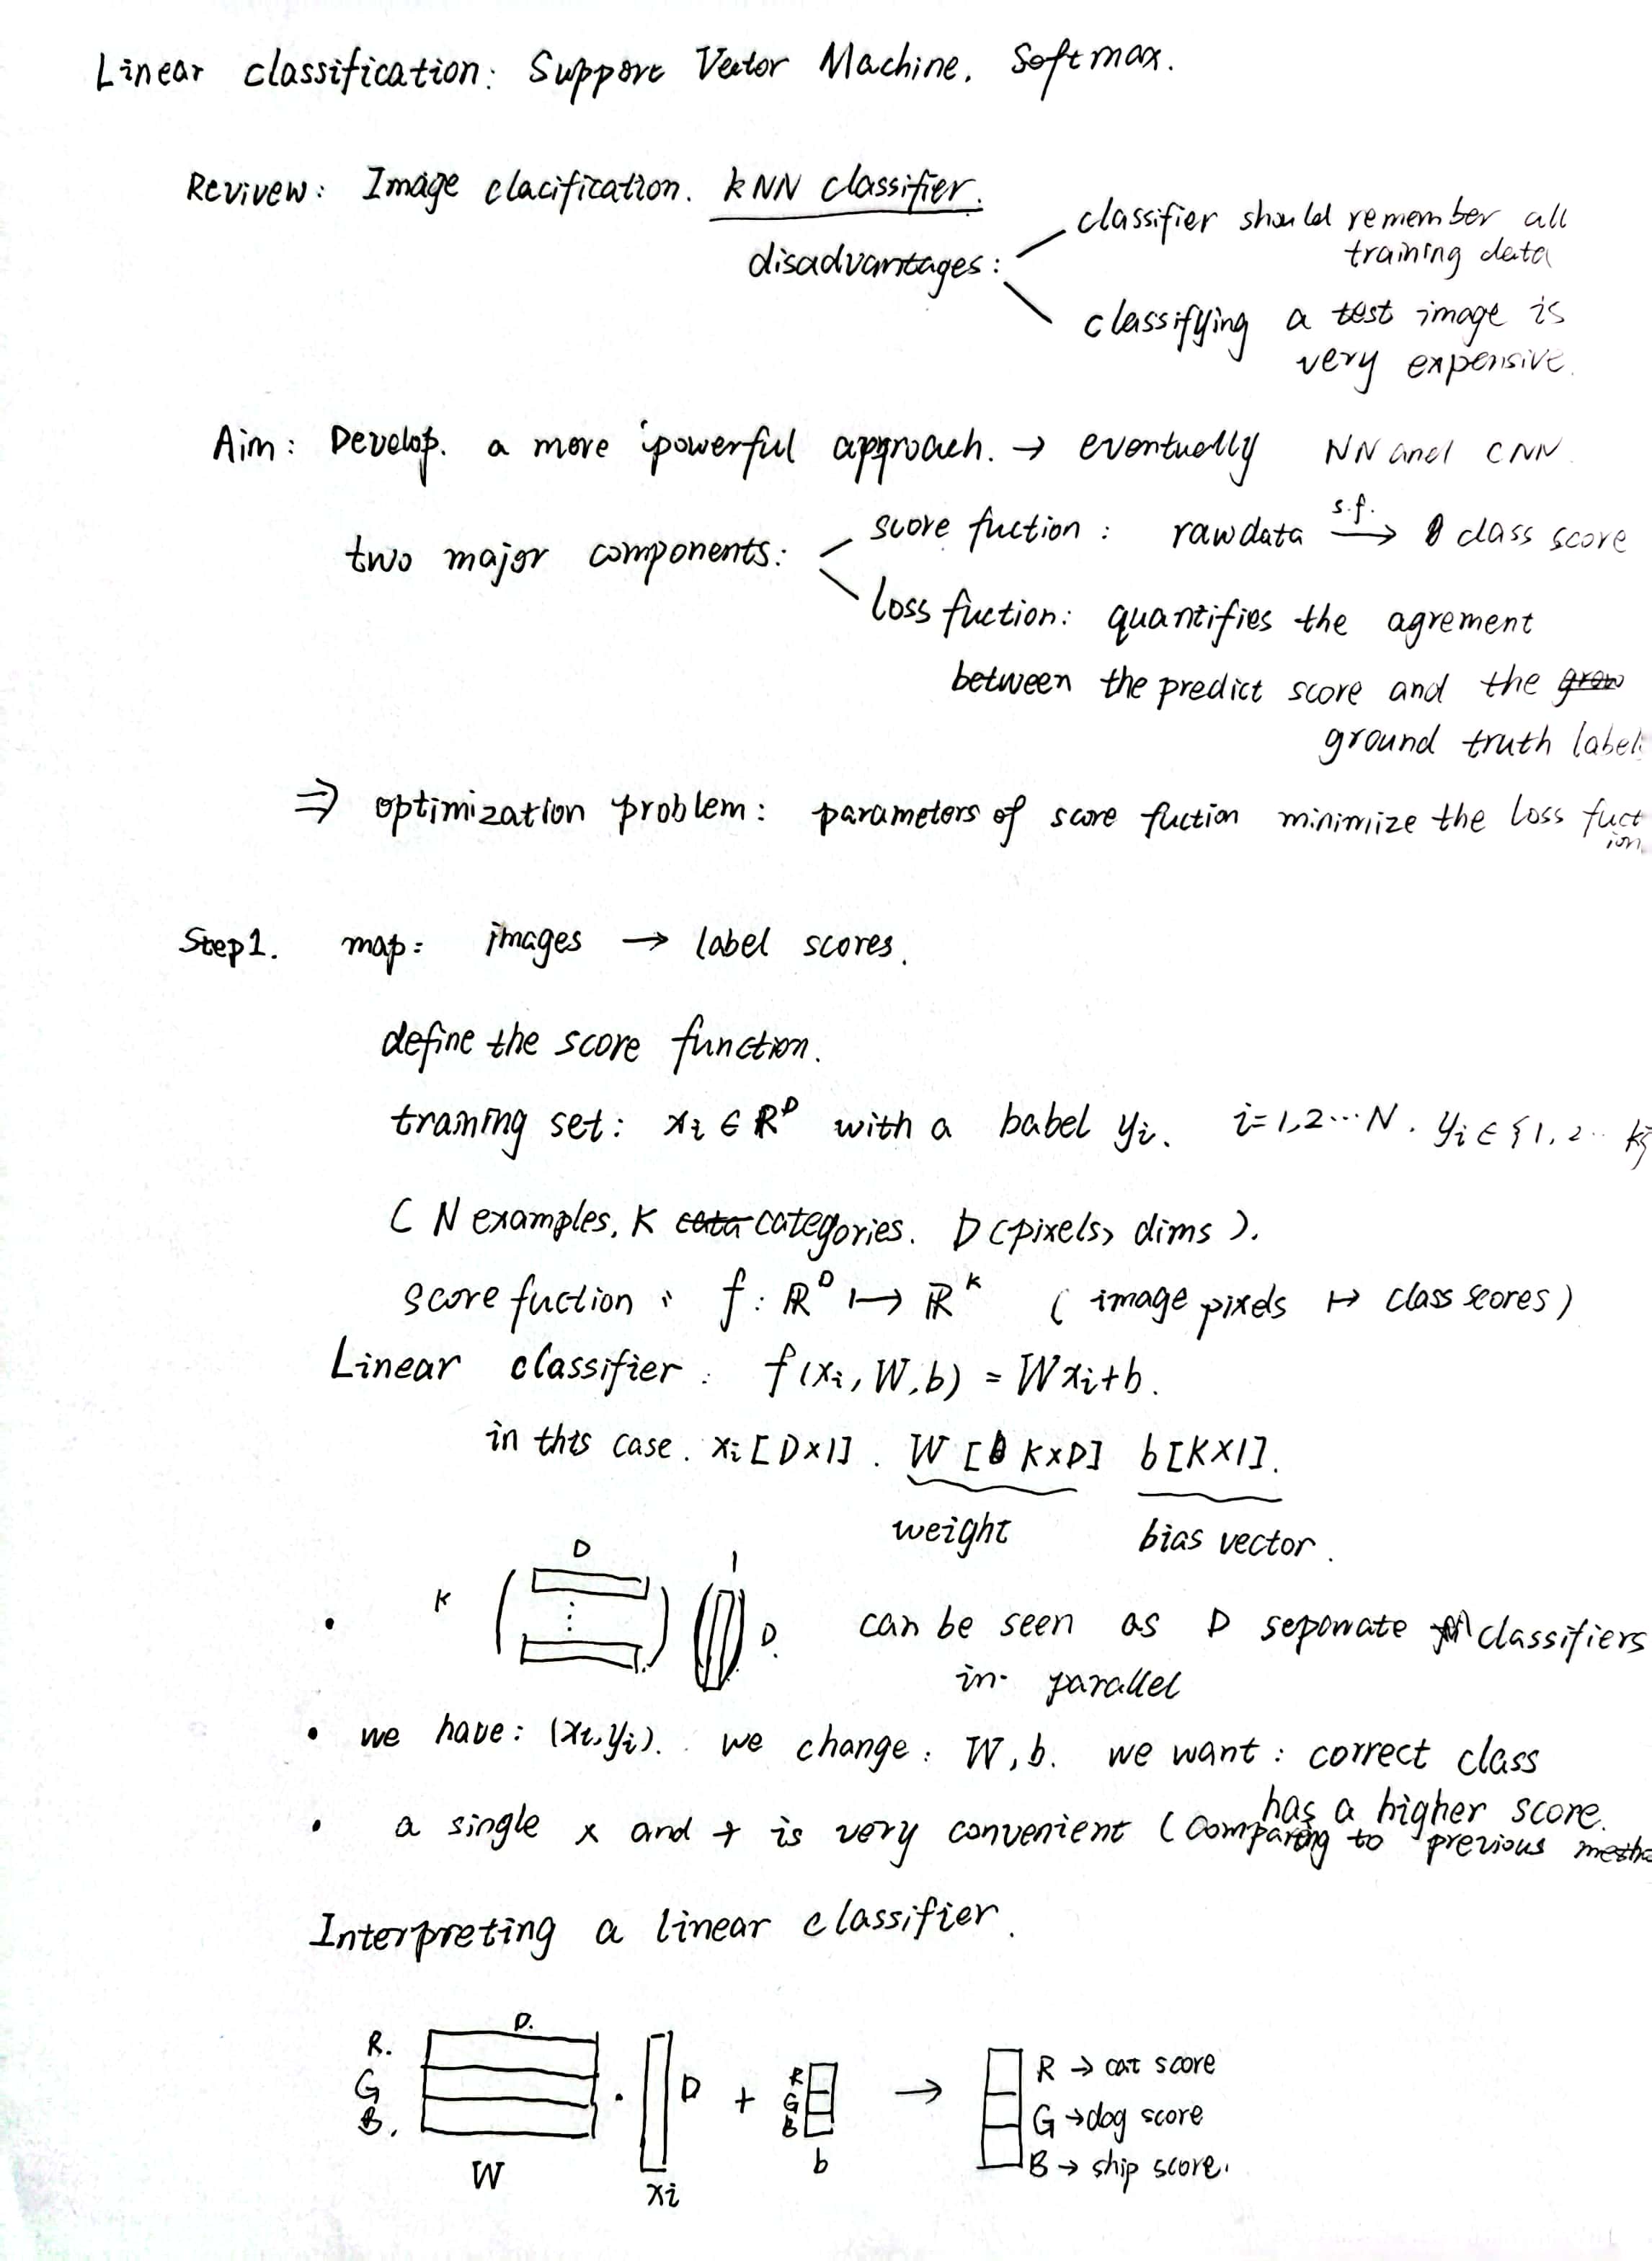 Linear classification: Support Vector Machine. Softmax.
Revivew: Image clacification. kNN classifier.
disadvantages:
classifier should remember all
training data
classifying a test image is
very expensive.
Aim: Develop. a more powerful approach. → eventually NN and CNN.
two major components:
score fuction: rawdata s.f. → class score
loss fuction: quantifies the agrement
between the predict score and the
ground truth label
⇒ optimization problem: parameters of score fuction minimiize the loss fuct
ion.
Step1. map: images → label scores.
define the score function.
training set: xi ∈ R^D with a babel yi. i=1,2…N. yi ∈ {1, 2… k}
( N examples, K categories. D (pixels, dims ).
score fuction: f: ℝ^D ↦ ℝ^K ( image pixels ↦ class scores)
Linear classifier: f(xi, W, b) = Wxi+b.
in this case. xi [D×1]. W [K×D] b[K×1].
weight bias vector.
D 1
• K D. can be seen as D seperate classifiers
in parallel
• we have: (xi, yi). we change: W, b. we want: correct class
has a higher score.
• a single x and + is very convenient (comparing to previous
Interpreting a linear classifier.
D.
R. G B. · D + R G B → R → cat score
G → dog score
B → ship score.
W xi b